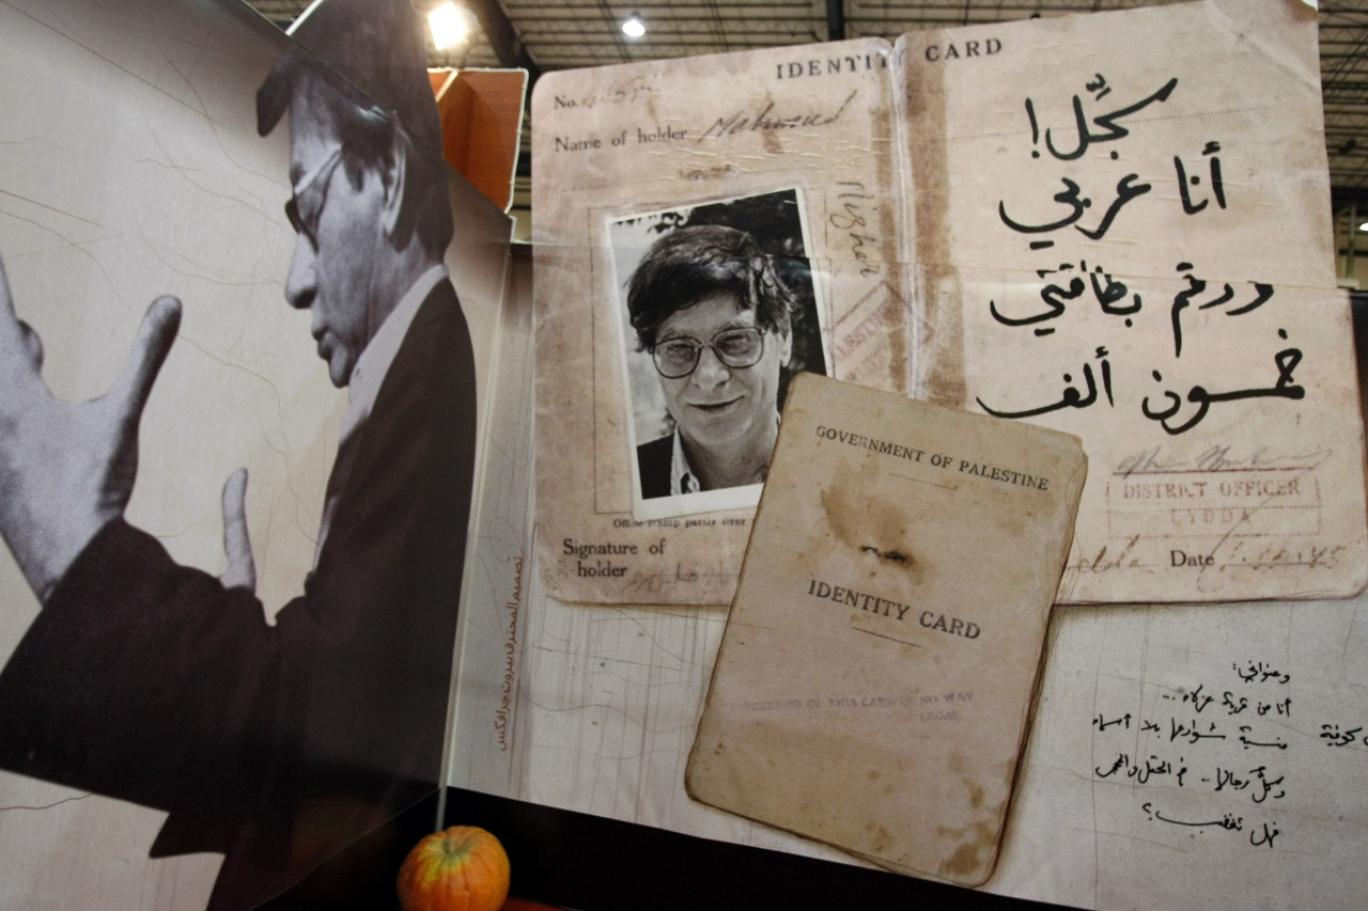 IDENTITY CARD
No.
Name of holder Mahmoud
سجِّل!
أنا عربي
ورقم بطاقتي
خمسون ألف
Office stamp partly over
Signature of
holder
DISTRICT OFFICER
LYDDA
Date
GOVERNMENT OF PALESTINE
IDENTITY CARD
OF THIS CARD IS NO WAY
تصميم المحترف بيروت جرافكس
وعنواني:
أنا من قرية عزلاء...
منسية شوارعها بلا أسماء
وكلّ رجالها.. في الحقل والمحجر
فهل تغضب؟
كوفية